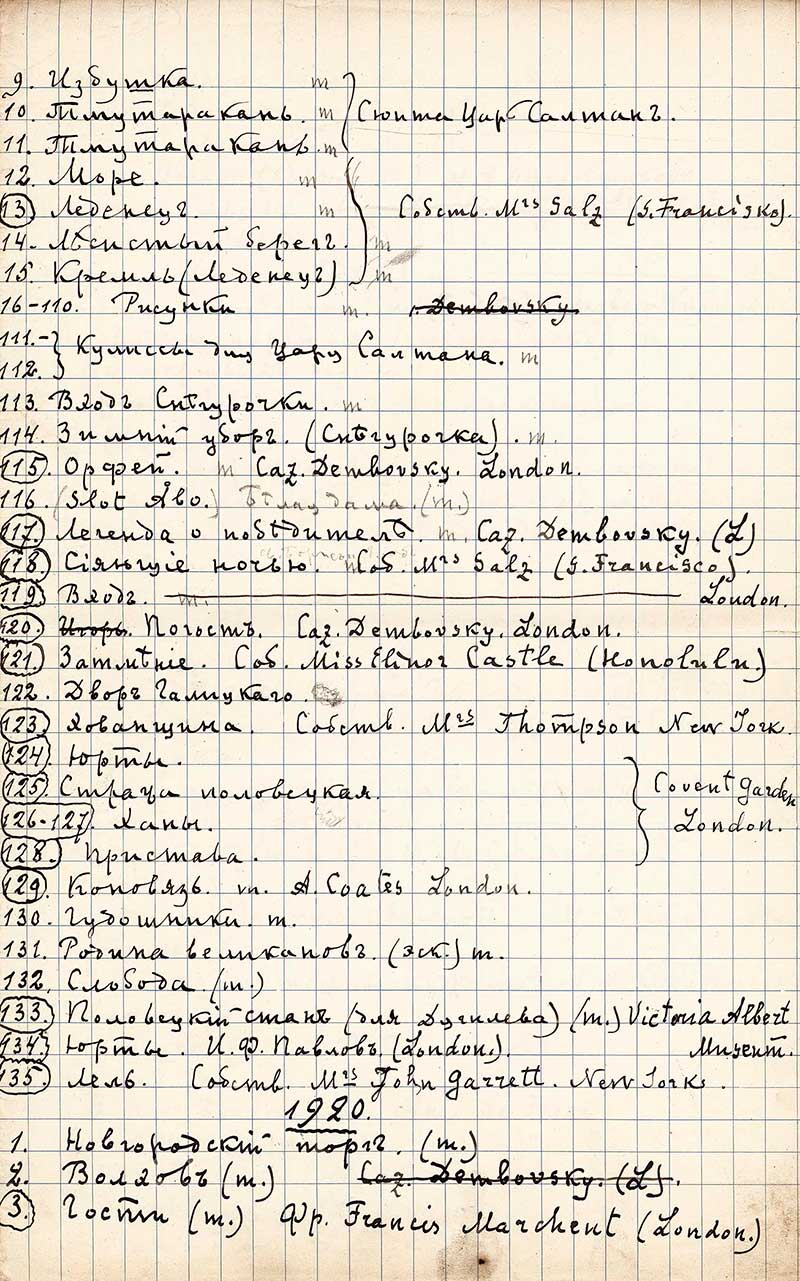 9. Избушка. т
10. Тмутаракань. т } Сюита Царь Салтанъ.
11. Тмутаракань. т
12. Море. т
13 Леденецъ. т } Собств. Mrs Salz (S. Francisko).
14. Лѣсистый берегъ. т
15. Кремль (Леденецъ) т
16-110. Рисунки т. Dembovsky.
111.-} Кулиссы для Царя Салтана. т
112.
113. Входъ Снѣгурочки. т
114. Зимній уборъ. (Снѣгурочка). т.
115. Орфей. т Caz. Dembovsky. London.
116. (Slot Åbo.) Бѣлая дама. (т.)
117. Легенда о побѣдителѣ. т. Caz. Dembovsky. (L)
118. Сіяющіе ночью. Соб. Mrs Salz (S. Francisco).
119 Входъ. т. London.
120. Игорь. Погостъ. Caz. Dembovsky. London.
121. Затмѣніе. Соб. Miss Elinor Castle (Honolulu.)
122. Дворъ Галицкаго.
123. Хованщина. Собств. Mrs Thompson New York.
124. Юрты.
125. Стража половецкая. } Covent Garden
126-127. Ханы. London.
128. Пристава.
129. Коновязь. т. A. Coates London.
130. Гудошники. т.
131. Родина великановъ. (эск.) т.
132. Слобода. (т.)
133. Половецкій станъ (для Дягилева) (т.) Victoria Albert
134. Юрты. И. Ф. Павловъ. (London.). Museum.
135. Лель. Собств. Mrs John Garrett. New York.
1920.
1. Новгородскій торгъ. (т.)
2. Волховъ (т.) Caz. Dembovsky. (L).
3. Гости (т.) Фр. Francis Marchent (London.)